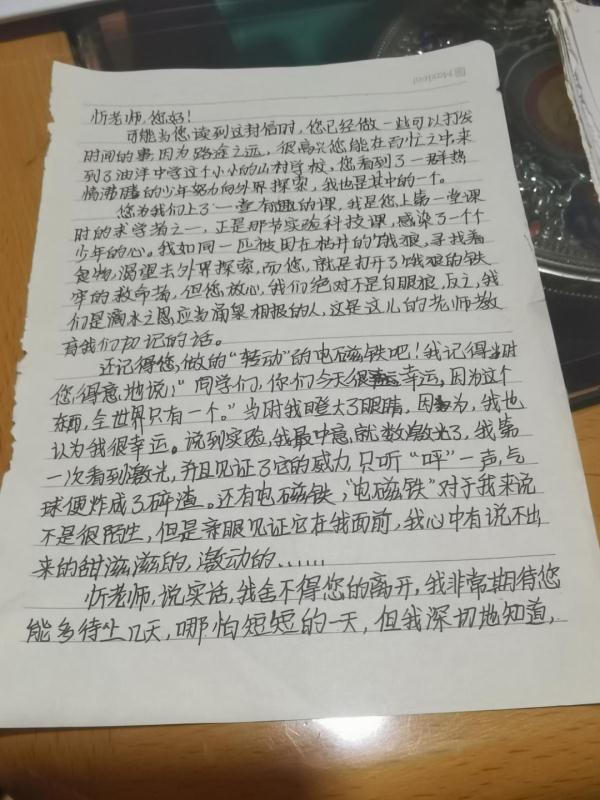 忻老师,您好!
可能当您读到这封信时,您已经做一些可以打发
时间的事,因为路途之远,很高兴您能在百忙之中来
到了油洋中学这个小小的山村学校,您看到了一群热
情沸腾的少年努力向外界探索,我也是其中的一个。
您为我们上了一堂有趣的课,我是您上第一堂课
时的求学者之一,正是那节实验科技课,感染了一个个
少年的心。我如同一匹被困在枯井的饿狼,寻找着
食物,渴望去外界探索,而您,就是打开了饿狼的铁
牢的救命者,但您放心,我们绝对不是白眼狼,反之,我
们是滴水之恩应当涌泉相报的人,这是这儿的老师教
育我们切记的话。
还记得您,做的“转动”的电磁铁吧!我记得当时
您得意地说;“同学们,你们今天很幸运,因为这个
东西,全世界只有一个。”当时我瞪大了眼睛,因为,我也
认为我很幸运。说到实验,我最中意,就数激光了,我第
一次看到激光,并且见证了它的威力,只听“呯”一声,气
球便炸成了碎渣。还有电磁铁,“电磁铁”对于我来说
不是很陌生,但是亲眼见证它在我面前,我心中有说不出
来的甜滋滋的,激动的......
忻老师,说实话,我舍不得您的离开,我非常期待您
能多待上几天,哪怕短短的一天,但我深切地知道,